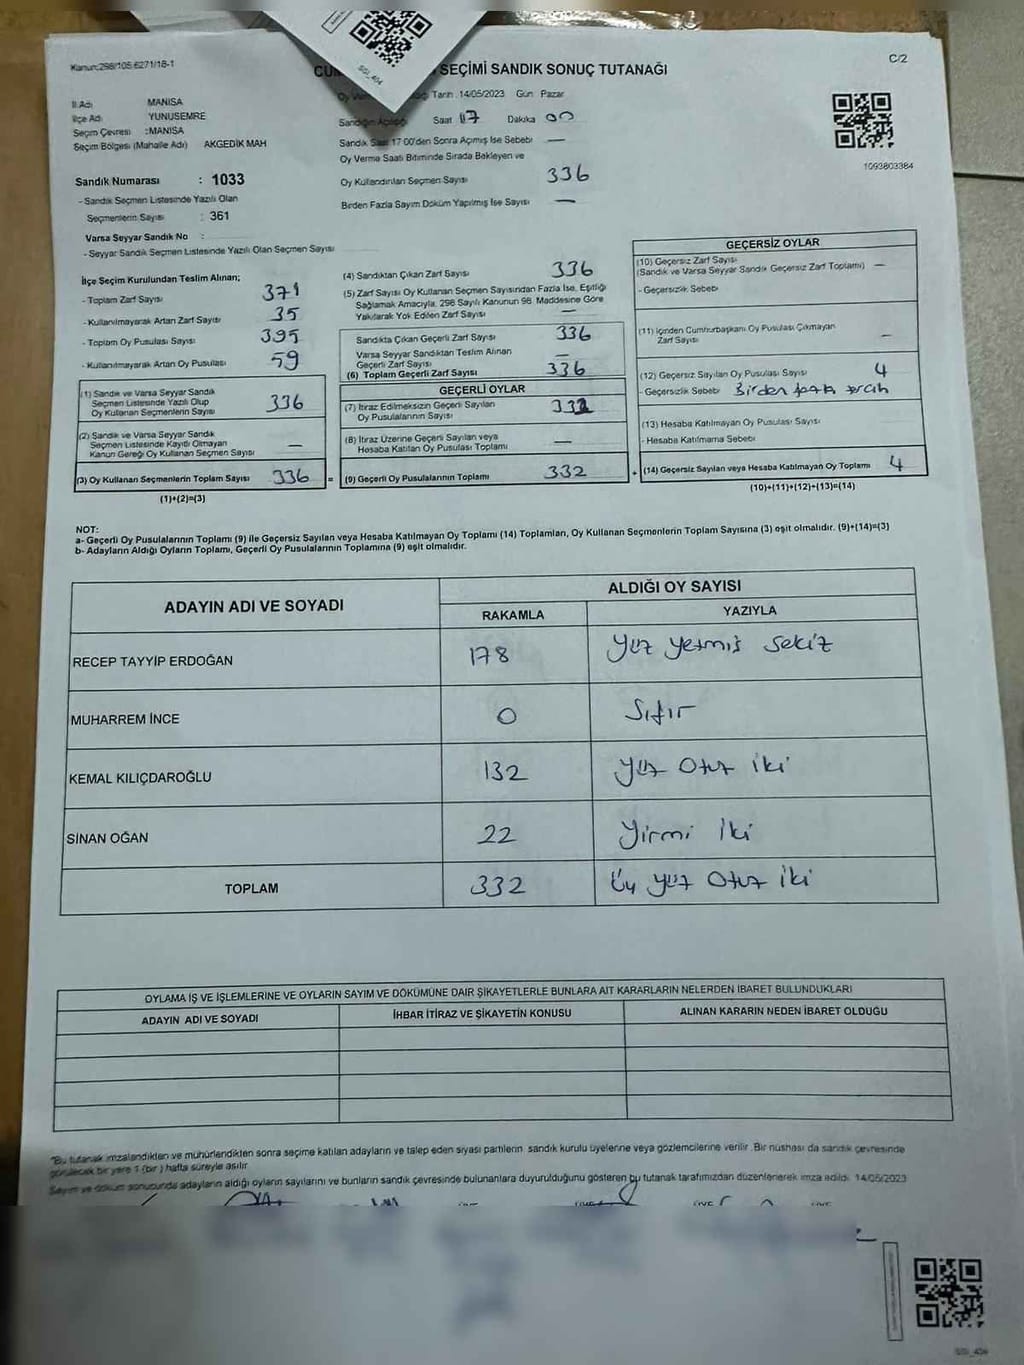 Kanun:298/105 6271/18-1
C/2
SEÇİMİ SANDIK SONUÇ TUTANAĞI
Tarih :14/05/2023 Gün Pazar
İl Adı MANİSA
İlçe Adı YUNUSEMRE
Seçim Çevresi :MANİSA
Seçim Bölgesi (Mahalle Adı) AKGEDİK MAH
Sandık Numarası : 1033
- Sandık Seçmen Listesinde Yazılı Olan
Seçmenlerin Sayısı : 361
Varsa Seyyar Sandık No :
- Seyyar Sandık Seçmen Listesinde Yazılı Olan Seçmen Sayısı
Sandığın Açıldığı Saat 17 Dakika 00
Sandık Saat 17:00'den Sonra Açımış İse Sebebi —
Oy Verme Saati Bitiminde Sırada Bekleyen ve
Oy Kullandırılan Seçmen Sayısı 336
Birden Fazla Sayım Döküm Yapılmış İse Sayısı —
1093803384
İlçe Seçim Kurulundan Teslim Alınan;
- Toplam Zarf Sayısı 371
- Kullanılmayarak Artan Zarf Sayısı 35
- Toplam Oy Pusulası Sayısı 395
- Kullanılmayarak Artan Oy Pusulası 59
(1) Sandık ve Varsa Seyyar Sandık
Seçmen Listesinde Yazılı Olup
Oy Kullanan Seçmenlerin Sayısı 336
(2) Sandık ve Varsa Seyyar Sandık
Seçmen Listesinde Kayıtlı Olmayan
Kanun Gereği Oy Kullanan Seçmen Sayısı —
(3) Oy Kullanan Seçmenlerin Toplam Sayısı 336 =
(1)+(2)=(3)
(4) Sandıktan Çıkan Zarf Sayısı 336
(5) Zarf Sayısı Oy Kullanan Seçmen Sayısından Fazla İse, Eşitliği
Sağlamak Amacıyla, 298 Sayılı Kanunun 98. Maddesine Göre
Yakılarak Yok Edilen Zarf Sayısı —
Sandıkta Çıkan Geçerli Zarf Sayısı 336
Varsa Seyyar Sandıktan Teslim Alınan
Geçerli Zarf Sayısı —
(6) Toplam Geçerli Zarf Sayısı 336
GEÇERLİ OYLAR
(7) İtiraz Edilmeksizin Geçerli Sayılan
Oy Pusulalarının Sayısı 332
(8) İtiraz Üzerine Geçerli Sayılan veya
Hesaba Katılan Oy Pusulası Toplamı —
(9) Geçerli Oy Pusulalarının Toplamı 332 +
GEÇERSİZ OYLAR
(10) Geçersiz Zarf Sayısı
(Sandık ve Varsa Seyyar Sandık Geçersiz Zarf Toplamı) —
- Geçersizlik Sebebi
(11) İçinden Cumhurbaşkanı Oy Pusulası Çıkmayan
Zarf Sayısı —
(12) Geçersiz Sayılan Oy Pusulası Sayısı 4
- Geçersizlik Sebebi Birden fazla tercih
(13) Hesaba Katılmayan Oy Pusulası Sayısı
- Hesaba Katılmama Sebebi
(14) Geçersiz Sayılan veya Hesaba Katılmayan Oy Toplamı 4
(10)+(11)+(12)+(13)=(14)
NOT:
a- Geçerli Oy Pusulalarının Toplamı (9) ile Geçersiz Sayılan veya Hesaba Katılmayan Oy Toplamı (14) Toplamları, Oy Kullanan Seçmenlerin Toplam Sayısına (3) eşit olmalıdır. (9)+(14)=(3)
b- Adayların Aldığı Oyların Toplamı, Geçerli Oy Pusulalarının Toplamına (9) eşit olmalıdır.
ADAYIN ADI VE SOYADI ALDIĞI OY SAYISI
RAKAMLA YAZIYLA
RECEP TAYYİP ERDOĞAN 178 Yüz Yetmiş Sekiz
MUHARREM İNCE 0 Sıfır
KEMAL KILIÇDAROĞLU 132 Yüz Otuz iki
SİNAN OĞAN 22 Yirmi iki
TOPLAM 332 Üç yüz Otuz iki
OYLAMA İŞ VE İŞLEMLERİNE VE OYLARIN SAYIM VE DÖKÜMÜNE DAİR ŞİKAYETLERLE BUNLARA AİT KARARLARIN NELERDEN İBARET BULUNDUKLARI
ADAYIN ADI VE SOYADI İHBAR İTİRAZ VE ŞİKAYETİN KONUSU ALINAN KARARIN NEDEN İBARET OLDUĞU
"Bu tutanak imzalandıktan ve mühürlendikten sonra seçime katılan adayların ve talep eden siyasi partilerin sandık kurulu üyelerine veya gözlemcilerine verilir. Bir nüshası da sandık çevresinde
görülecek bir yere 1 (bir ) hafta süreyle asılır.
Sayım ve döküm sonucunda adayların aldığı oyların sayılarını ve bunların sandık çevresinde bulunanlara duyurulduğunu gösteren bu tutanak tarafımızdan düzenlenerek imza edildi. 14/05/2023